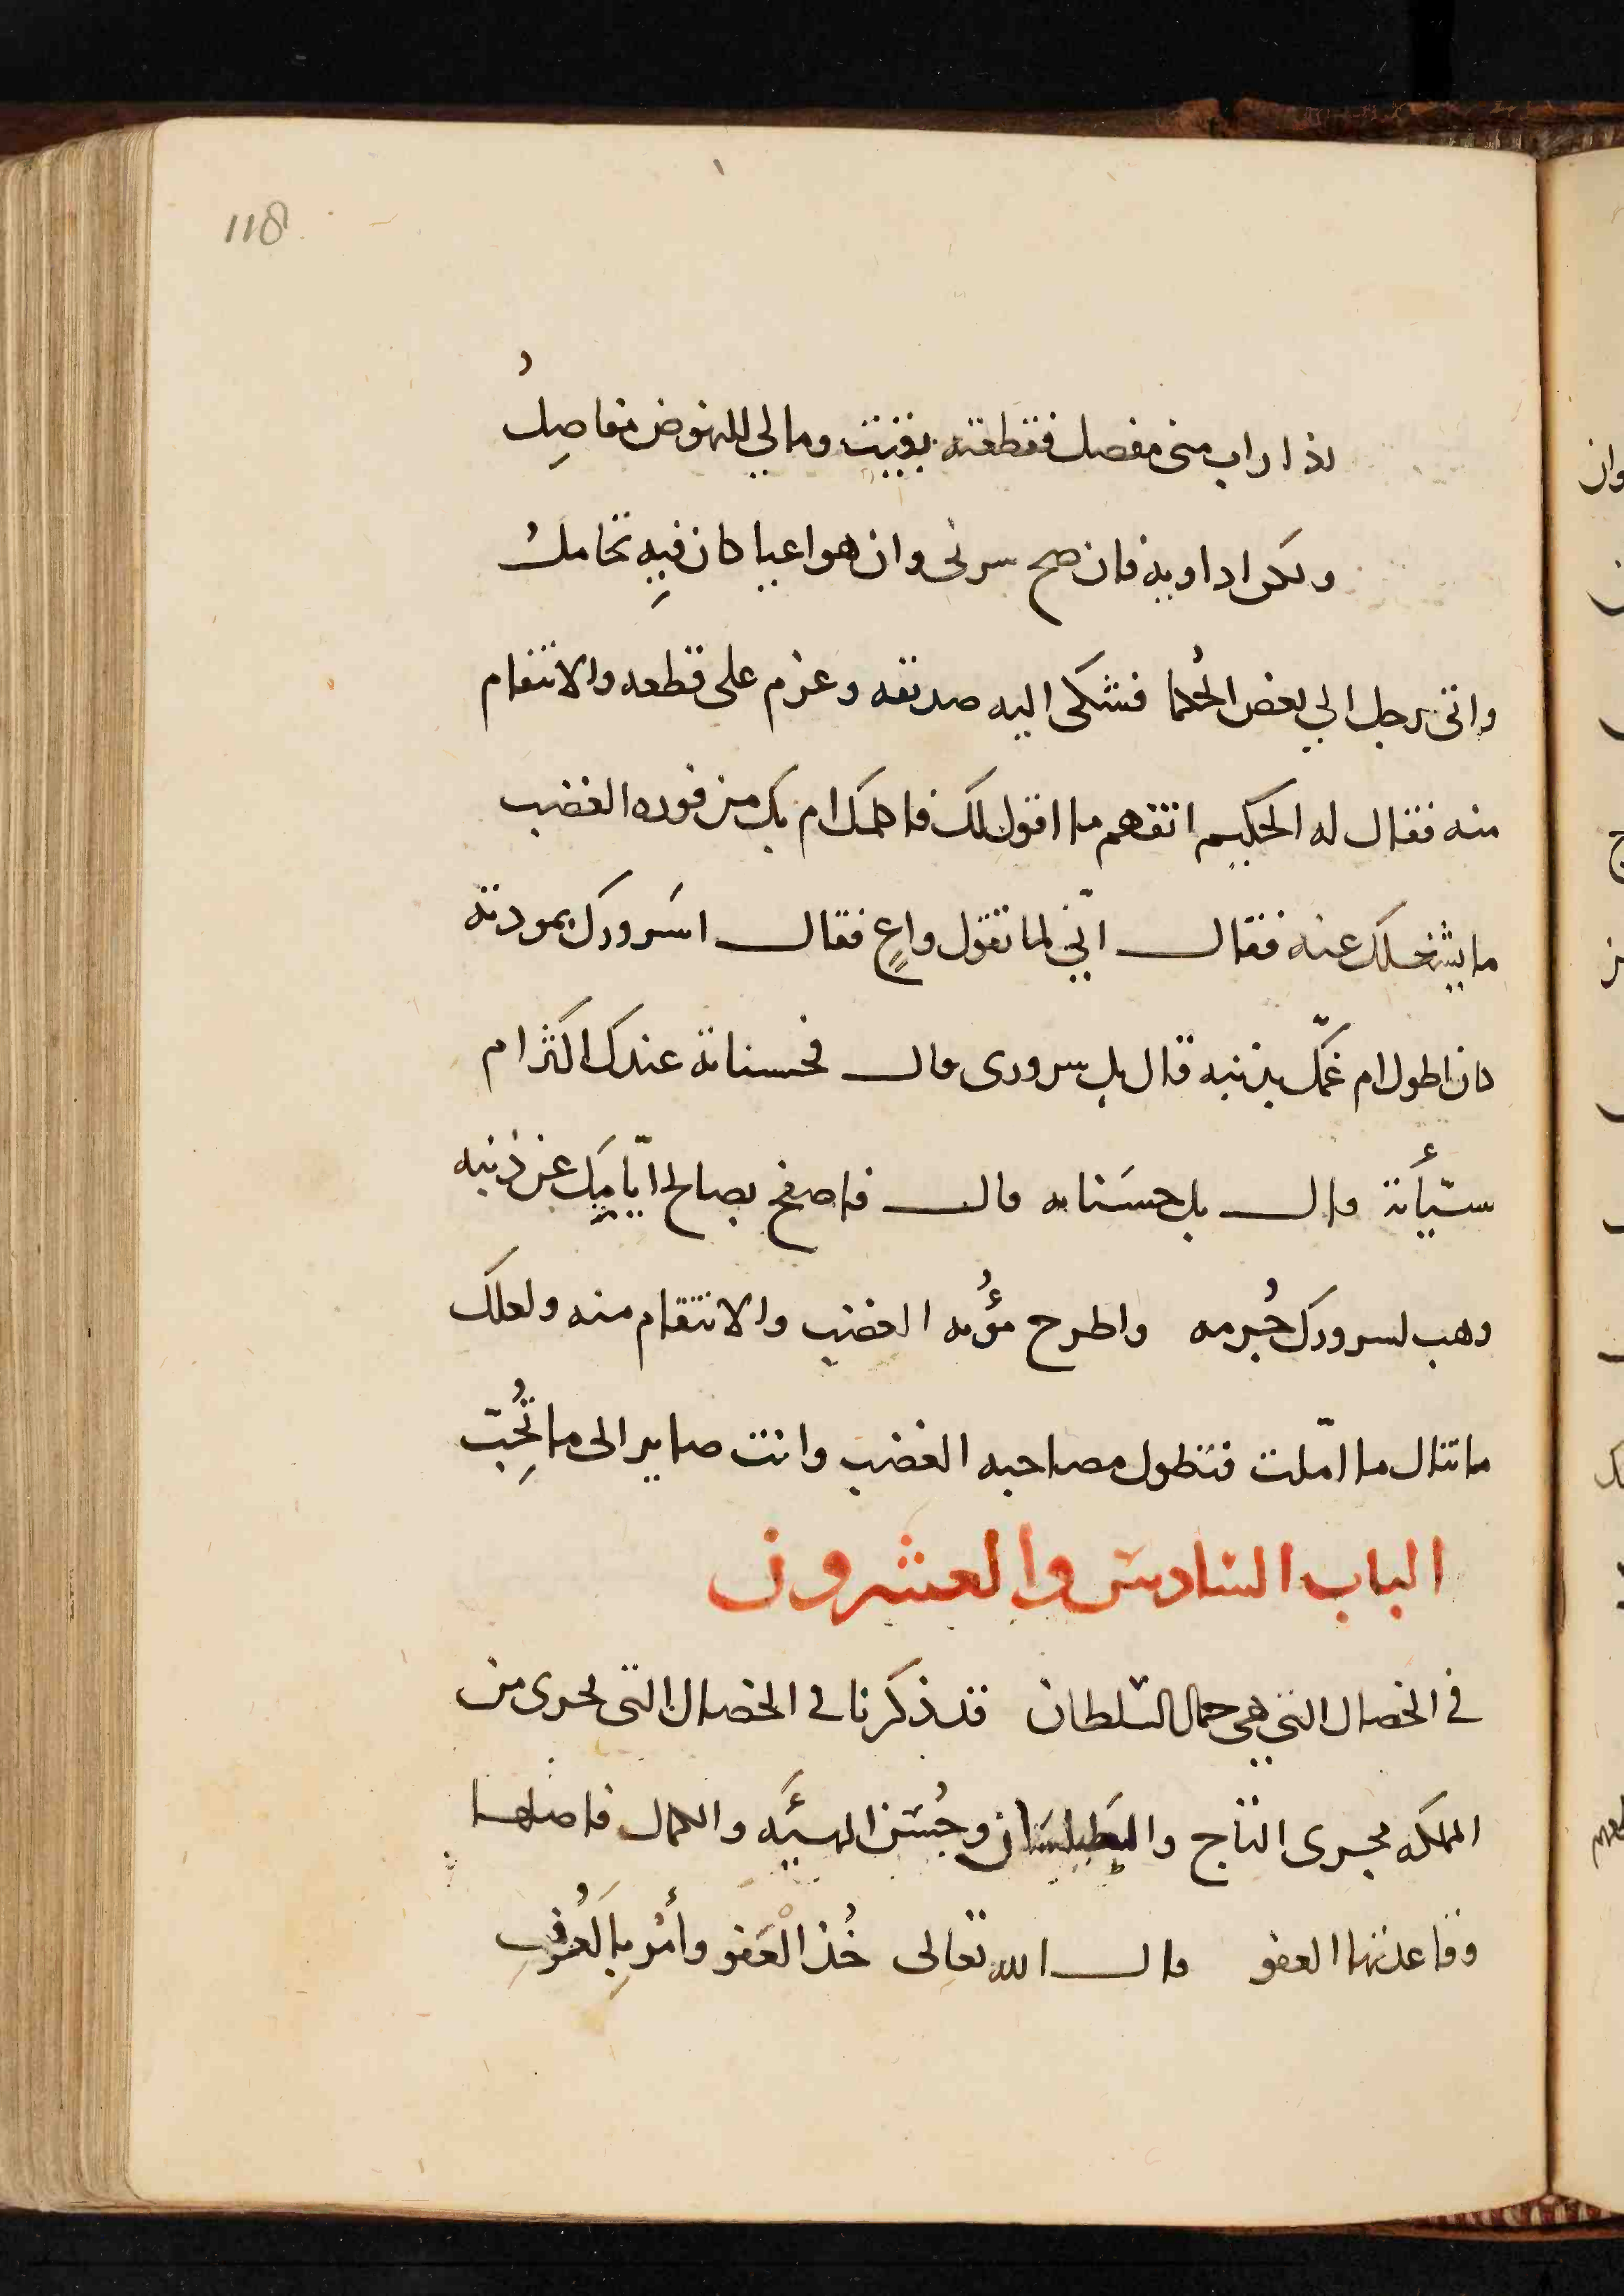 118
اذا راب منى مفصل فقطعته بقيت ومالي للنهوض مفاصلُ
ولكن اداويه فان صح سرنى وان هو اعيا كان فيهِ تحاملُ
واتى رجل الي بعض الحُكما فشكى اليه صديقه وعزم على قطعه والانتقام
منه فقال له الحكيم اتفهم ما اقول لك فاكلمك ام بك من فوره الغضب
ما يشغلك عنه فقال انّي لما تقول واعٍ فقال اسَرورك بمودته
كان اطول ام غمّك بذنبه قال بل سرورى قال فحسناته عندك اكثر ام
سيّأته قال بل حسَناته قال فاصفح بصالح ايّامِك عن ذنبه
وهب لسرورك جُرمه واطرح مؤُنه الغضب والانتقام منه ولعلك
ما تنال ما امّلت فتطول مصاحبه الغضب وانت صاير الى ما تُحِبّ
الباب السادس والعشرون
في الخصال التي هي جمال السّلطان قد ذكرنا في الخصال التى تجرى من
المملكه مجرى التاج والطيلسان وحُسْن الهيئَه والكمال فاصلها
وقاعدتها العفو قال الله تعالى خُذ الْعَفو وأمُر بِالعُرفِ